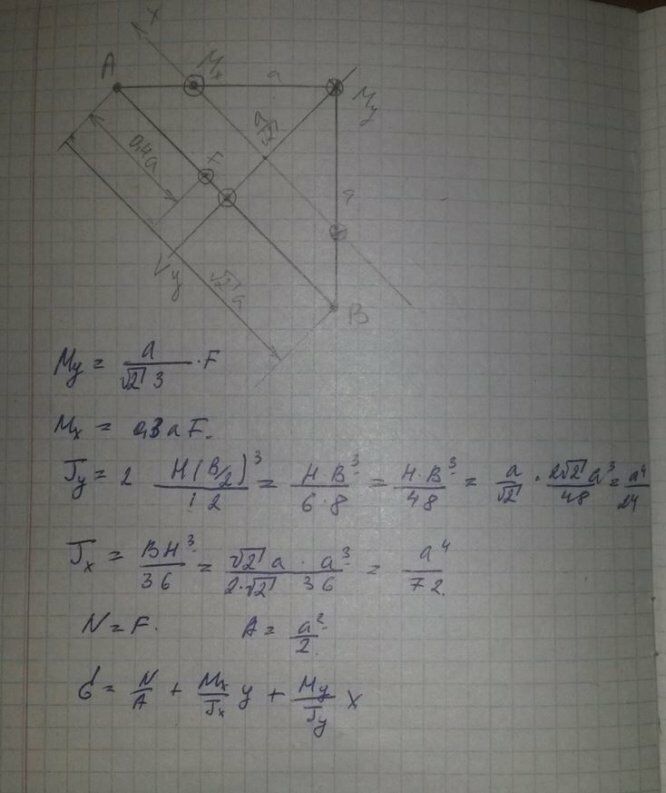 x
A
Mx
a
My
a/√2
0,4a
F
a
y
√2 a
B
My = a/(√2 3) · F
Mx = 0,3 a F.
Jy = 2 H(B/2)³/12 = H·B³/(6·8) = H·B³/48 = a/√2 · 2√2 a³/48 = a⁴/24
Jx = BH³/36 = √2 a · a³/(2·√2 36) = a⁴/72
N = F. A = a²/2
σ = N/A + Mx/Jx y + My/Jy x